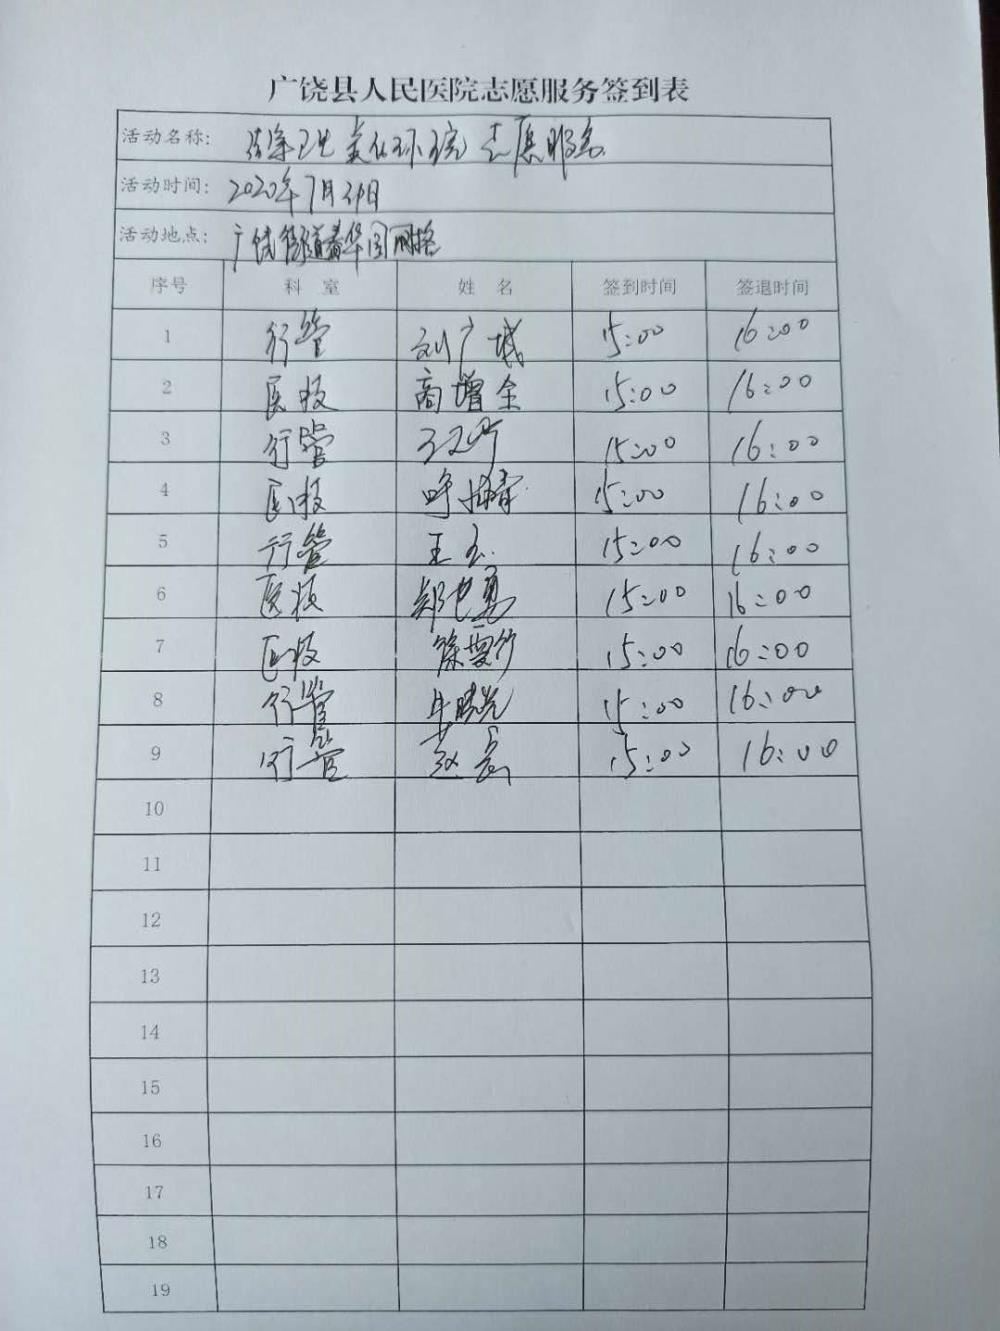 广饶县人民医院志愿服务签到表
活动名称: 清除卫生美化环境志愿服务
活动时间: 2020年7月29日
活动地点: 广饶街道 华园网格
序号 科室 姓名 签到时间 签退时间
1 行管 刘广城 15:00 16:00
2 医技 商增全 15:00 16:00
3 行管 15:00 16:00
4 医技 15:00 16:00
5 行管 王 15:00 16:00
6 医技 郑 勇 15:00 16:00
7 医技 徐雪竹 15:00 16:00
8 行管 牛晓光 15:00 16:00
9 行管 赵 15:00 16:00
10
11
12
13
14
15
16
17
18
19